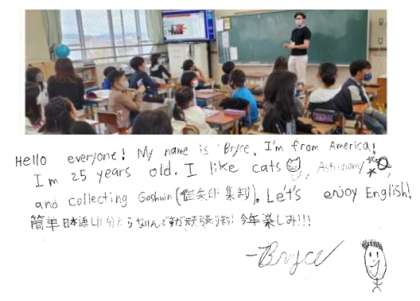 Hello everyone! My name is Bryce. I'm from America!
I'm 25 years old. I like cats, Astronomy
and collecting Goshuin (御朱印 集判). Let's enjoy English!
簡単日本語しか分からないんですが頑張ります! 今年楽しみ!!!
-Bryce